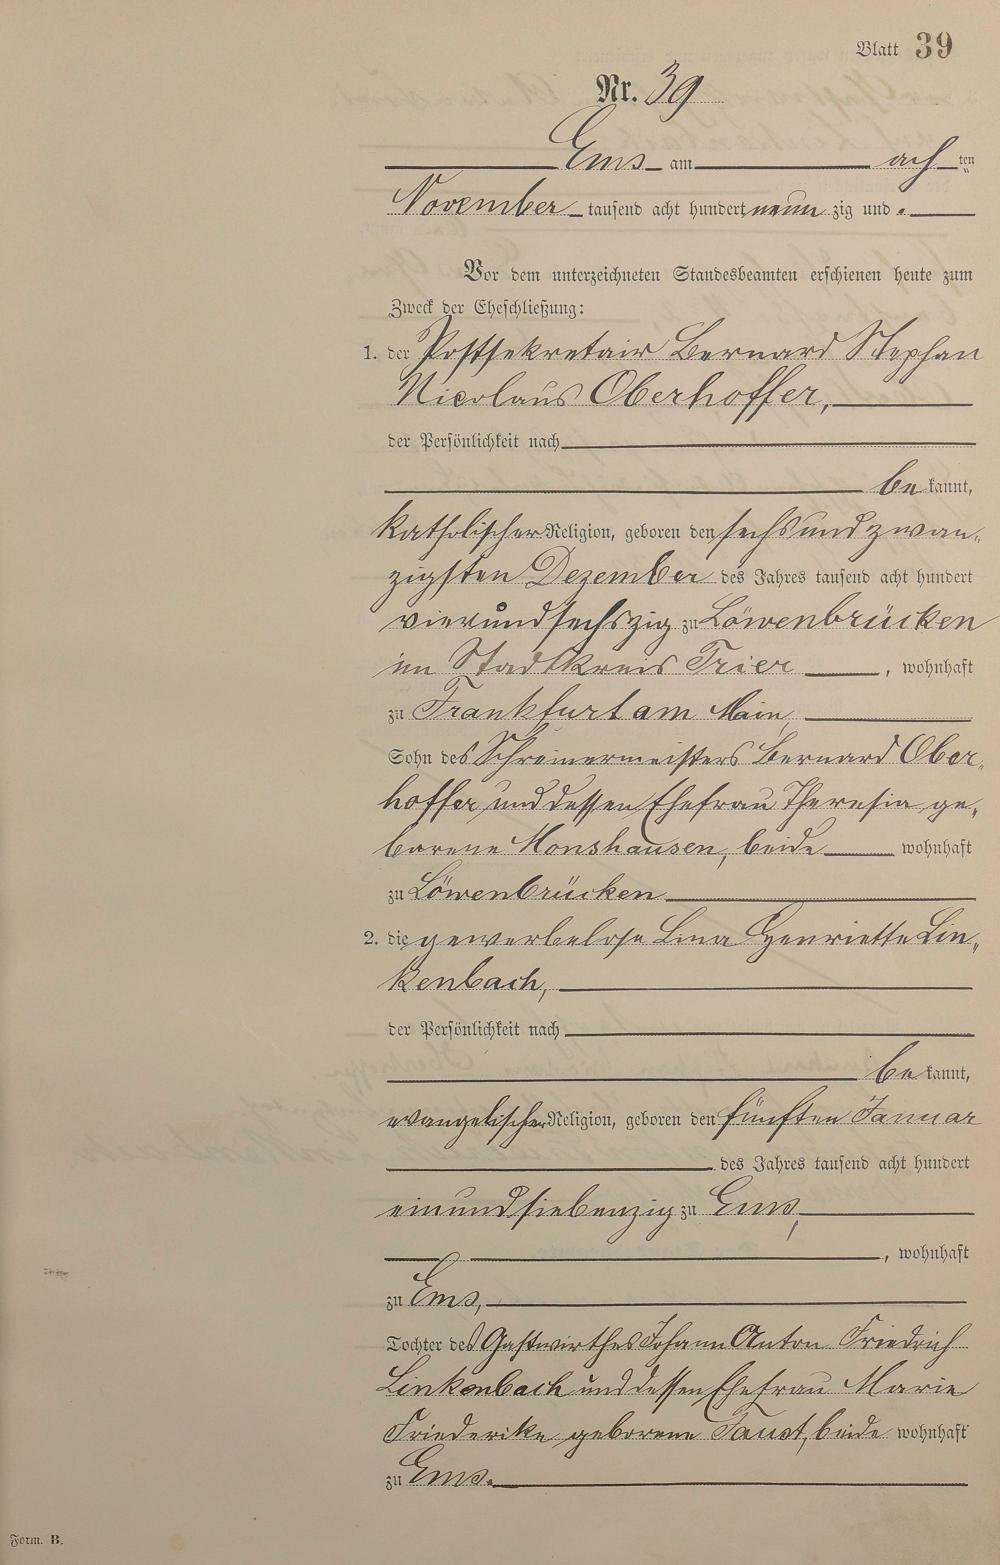 Blatt 39
Nr. 39
Ems am ach ten
November tausend acht hundert neun zig und
Vor dem unterzeichneten Standesbeamten erschienen heute zum
Zweck der Eheschließung:
1. der Postsekretair Bernard Stephan
Nicolaus Oberhoffer,
der Persönlichkeit nach
be kannt,
katholischer Religion, geboren den sechsundzwan-
zigsten Dezember des Jahres tausend acht hundert
vierundsechszig zu Löwenbrücken
im Stadtkreis Trier, wohnhaft
zu Frankfurt am Main,
Sohn des Schreinermeisters Bernard Ober-
hoffer und dessen Ehefrau Theresia ge-
borene Monshausen, beide wohnhaft
zu Löwenbrücken
2. die gewerbelose Lina Henriette Lin-
kenbach,
der Persönlichkeit nach
be kannt,
evangelischer Religion, geboren den fünften Januar
des Jahres tausend acht hundert
einundsiebenzig zu Ems,
, wohnhaft
zu Ems,
Tochter des Gastwirthes Johann Anton Friedrich
Linkenbach und dessen Ehefrau Marie
Friederike geborene Faust, beide wohnhaft
zu Ems.
Form. B.